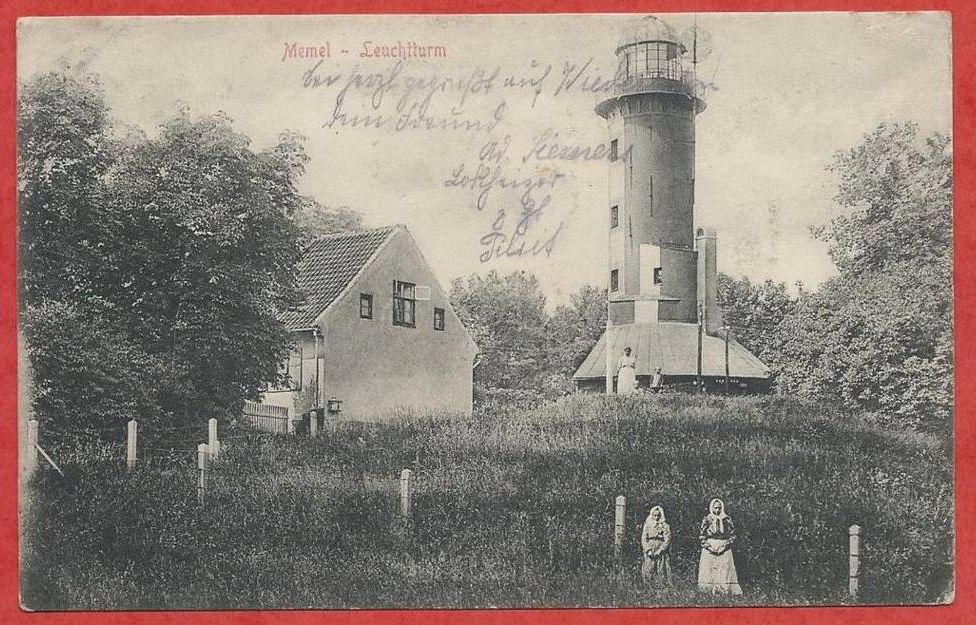 Memel - Leuchtturm
sei herzl gegrüßt auf Wiedersehn
dein Freund
Ad. Siemens
Lokheizer
z. Zt.
Tilsit